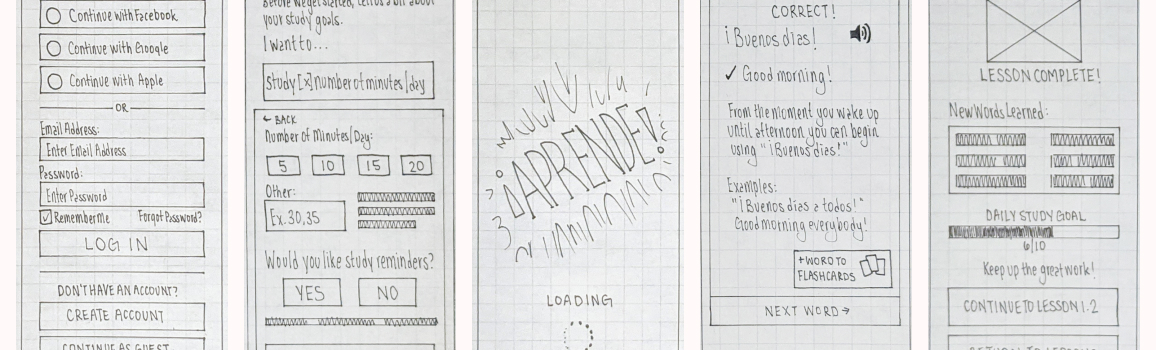 Continue with Facebook
Continue with Google
Continue with Apple
OR
Email Address:
Enter Email Address
Password:
Enter Password
Remember Me Forgot Password?
LOG IN
DON'T HAVE AN ACCOUNT?
CREATE ACCOUNT
CONTINUE AS GUEST
Before we get started, tell us a bit about
your study goals.
I want to...
Study [x] number of minutes/day
← BACK
Number of Minutes/Day:
5 10 15 20
Other:
Ex. 30,35
Would you like study reminders?
YES NO
¡APRENDE!
LOADING
CORRECT!
¡Buenos días!
✓ Good morning!
From the moment you wake up
until afternoon you can begin
using "¡Buenos días!"
Examples:
"¡Buenos días a todos!"
Good morning everybody!
+WORD TO
FLASHCARDS
NEXT WORD →
LESSON COMPLETE!
New Words Learned:
DAILY STUDY GOAL
6/10
Keep up the great work!
CONTINUE TO LESSON 1.2
RETURN TO LESSONS